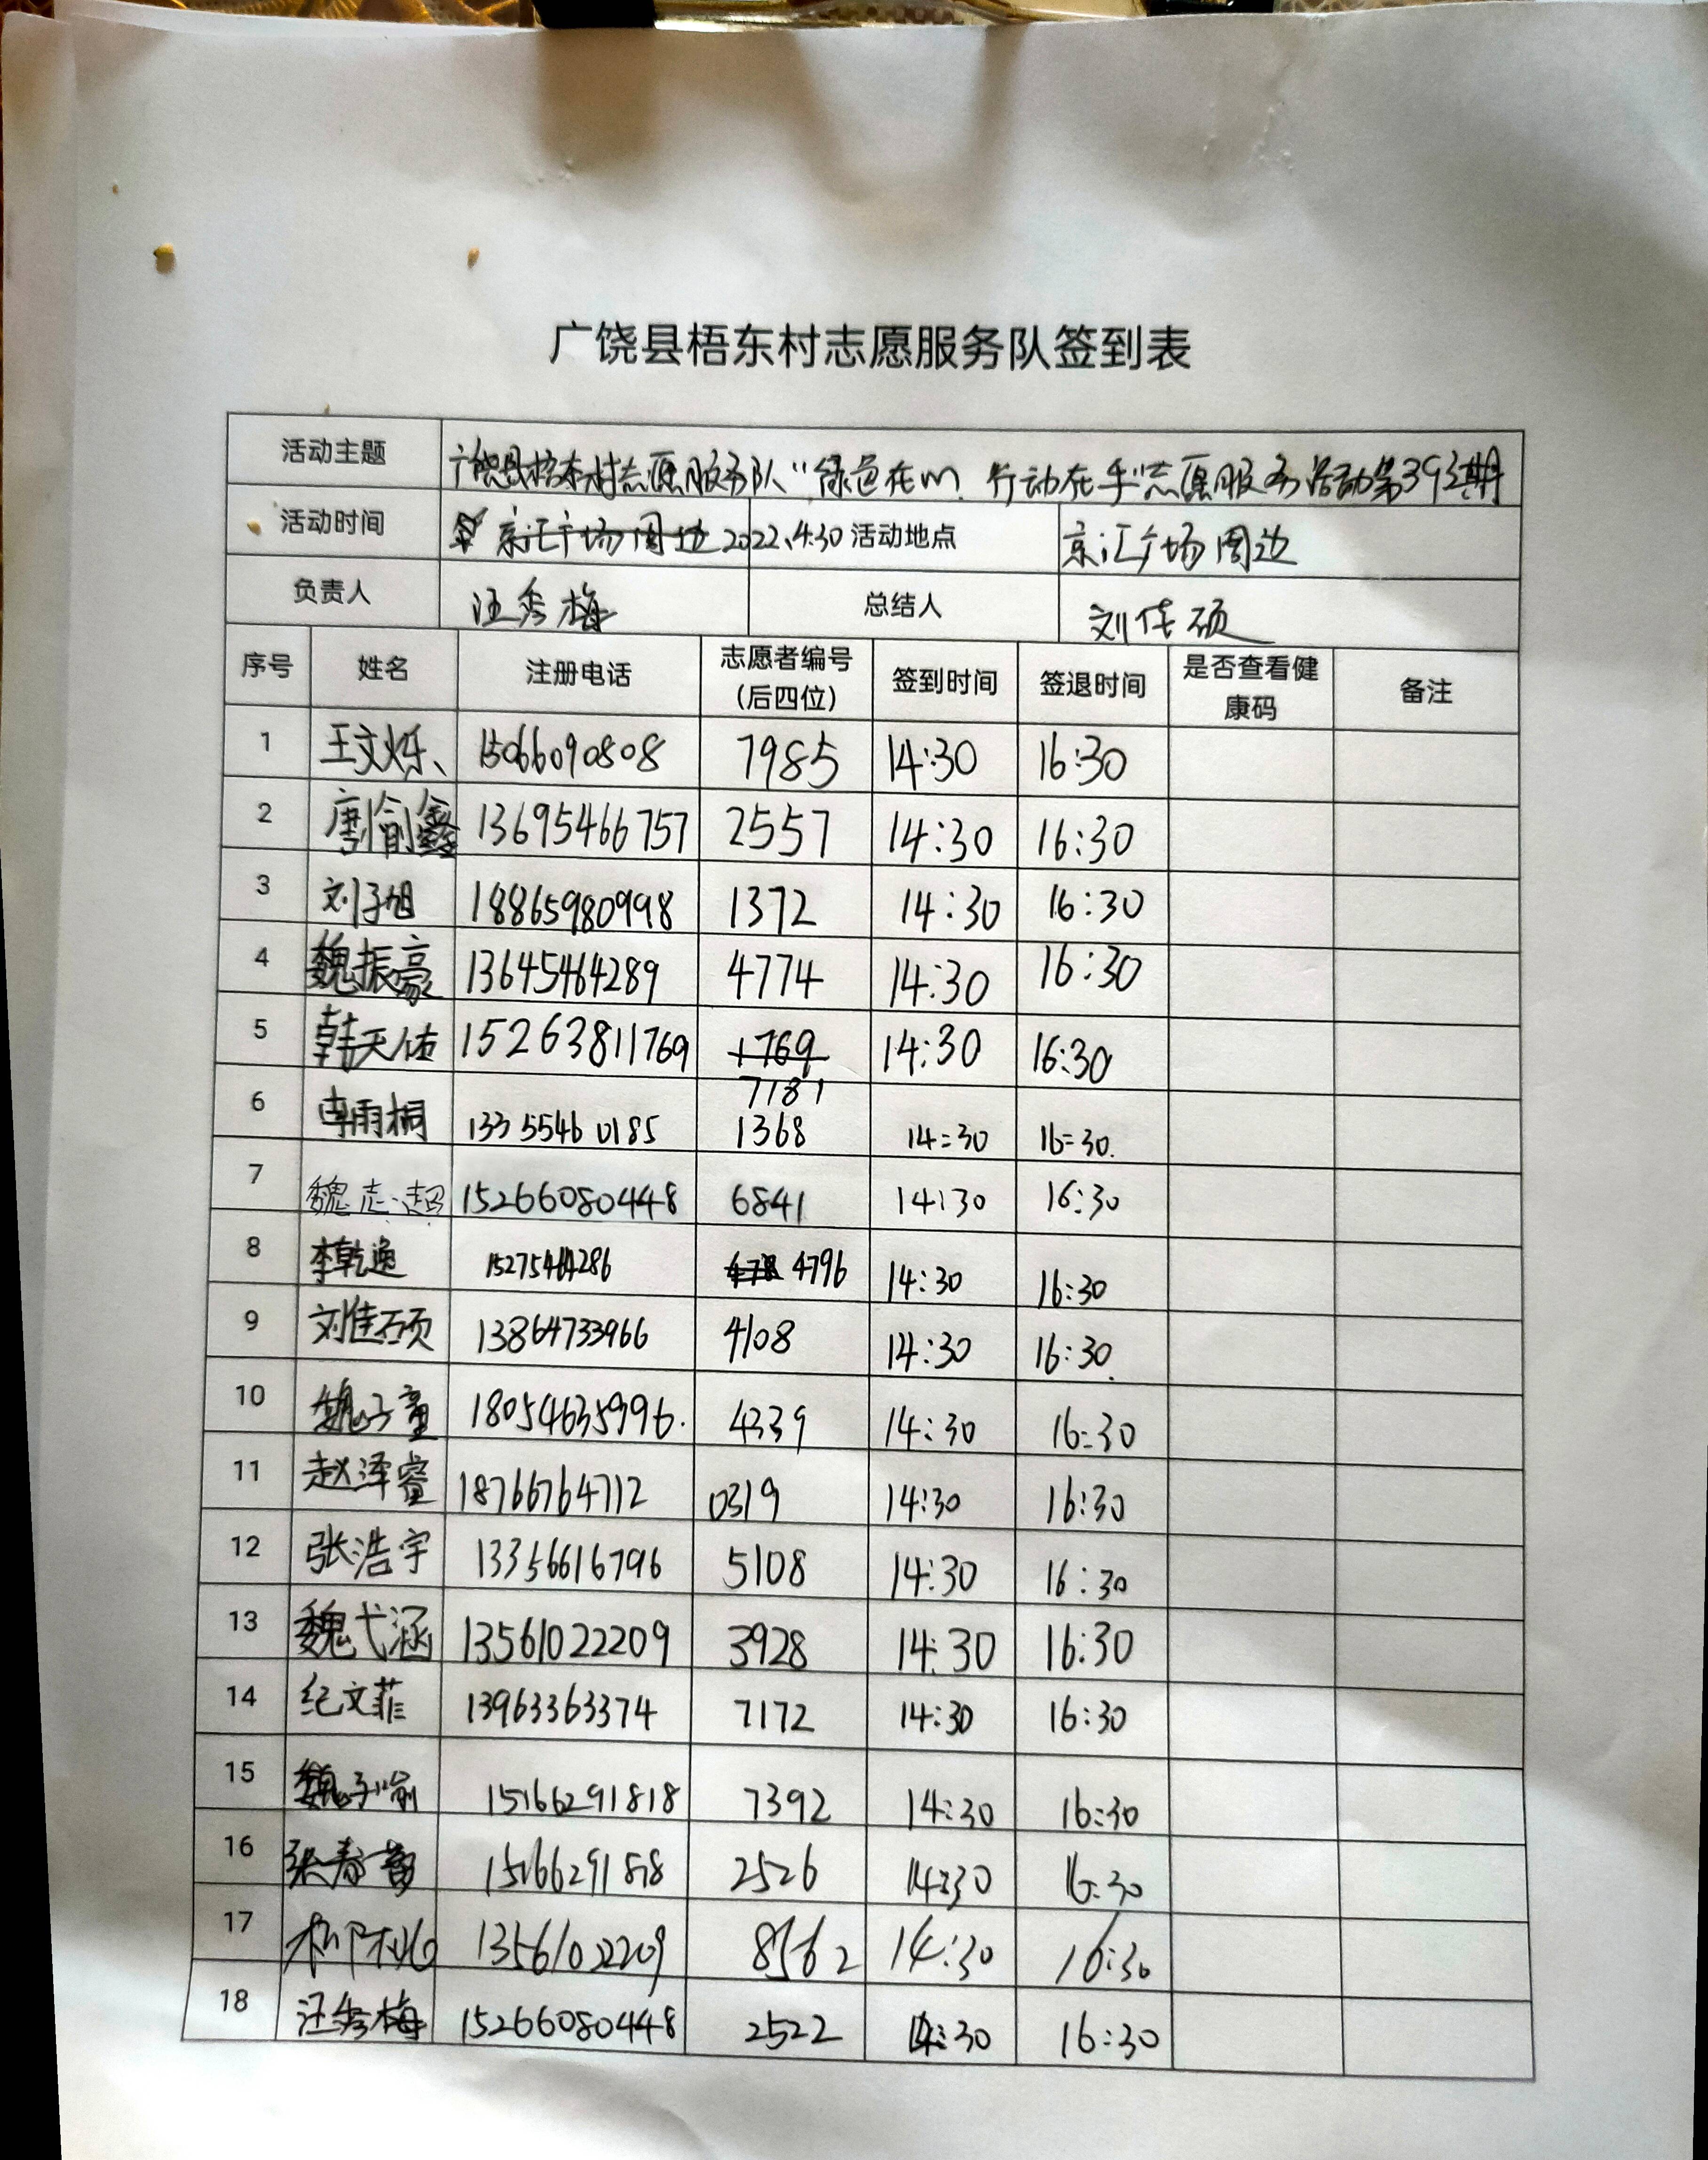 广饶县梧东村志愿服务队签到表
活动主题 广饶县梧东村志愿服务队“绿色在心 行动在手”志愿服务活动第393期
活动时间 京汇广场周边 2022.4.30 活动地点 京汇广场周边
负责人 汪秀梅 总结人 刘佳硕
序号 姓名 注册电话 志愿者编号（后四位） 签到时间 签退时间 是否查看健康码 备注
1 王文烁、 15066090808 7985 14:30 16:30
2 唐愉鑫 13695466757 2557 14:30 16:30
3 刘子旭 18865980998 1372 14:30 16:30
4 魏振豪 13645464289 4774 14:30 16:30
5 韩天佑 15263811769 1769 7181 14:30 16:30
6 李雨桐 13355460185 1368 14:30 16:30.
7 魏志超 15266080448 6841 14:30 16:30
8 李乾逸 15275464286 4796 14:30 16:30
9 刘佳硕 13864733966 4108 14:30 16:30.
10 魏子童 18054635996. 4339 14:30 16:30
11 赵泽睿 18766764712 0319 14:30 16:30
12 张浩宇 13356616796 5108 14:30 16:30
13 魏弋涵 13561022209 3928 14:30 16:30
14 纪文菲 13963363374 7172 14:30 16:30
15 魏子喻 15166291818 7392 14:30 16:30
16 张春 15166291818 2526 14:30 16:30
17 13561022209 8562 14:30 16:30
18 汪秀梅 15266080448 2522 14:30 16:30